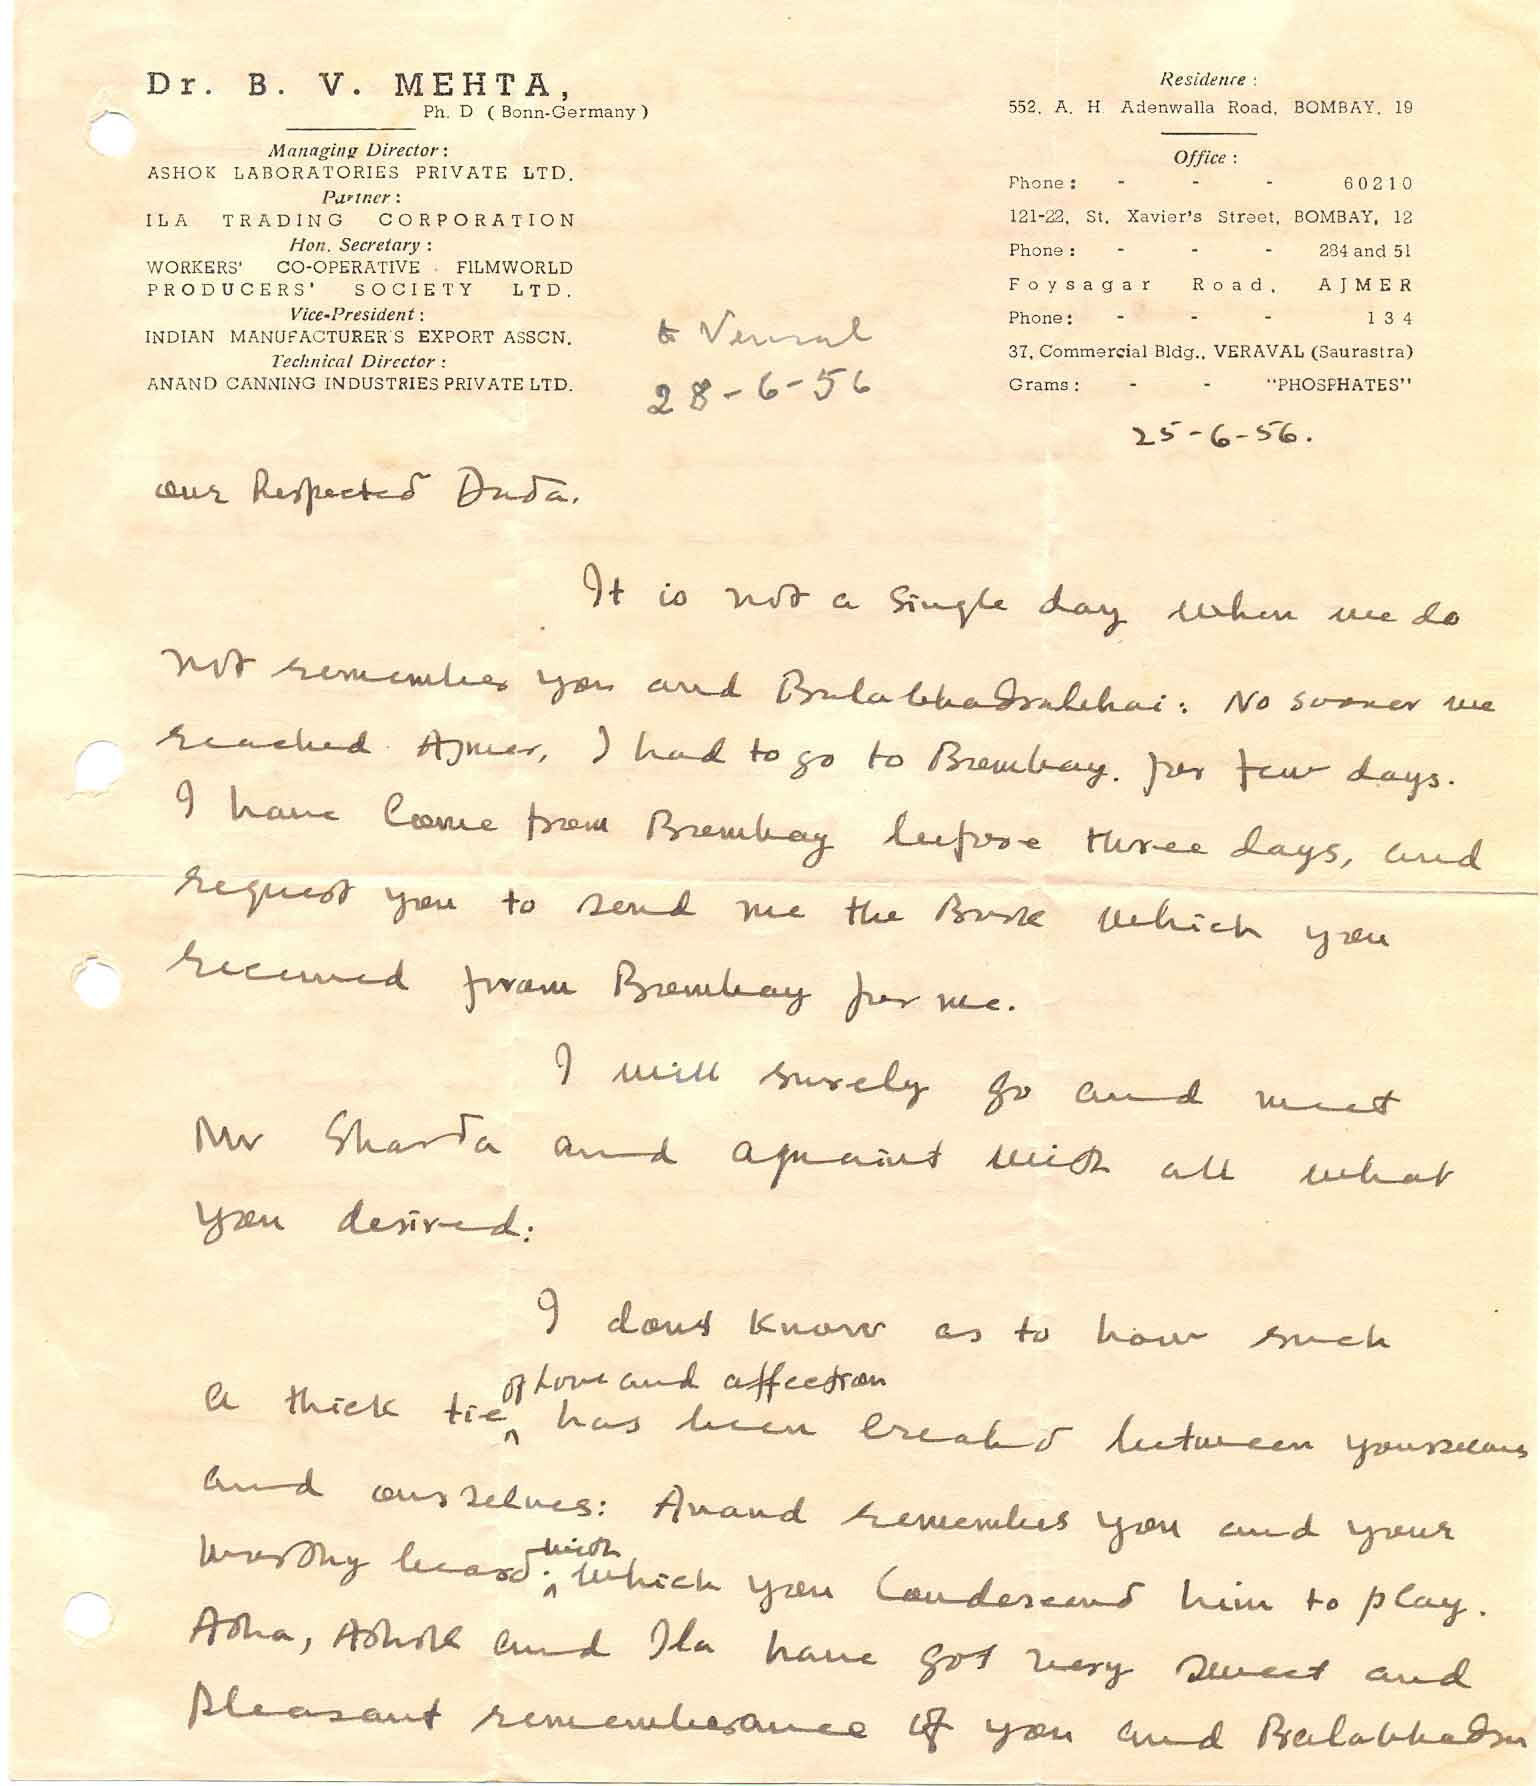 Dr. B. V. MEHTA,
Ph. D ( Bonn-Germany )
Managing Director :
ASHOK LABORATORIES PRIVATE LTD.
Partner :
ILA TRADING CORPORATION
Hon. Secretary :
WORKERS' CO-OPERATIVE FILMWORLD
PRODUCERS' SOCIETY LTD.
Vice-President :
INDIAN MANUFACTURER'S EXPORT ASSCN.
Technical Director :
ANAND CANNING INDUSTRIES PRIVATE LTD.
Residence :
552, A. H Adenwalla Road, BOMBAY, 19
Office :
Phone : - - - 60210
121-22, St. Xavier's Street, BOMBAY, 12
Phone : - - - 284 and 51
Foysagar Road, AJMER
Phone : - - - 134
37, Commercial Bldg., VERAVAL (Saurastra)
Grams : - - "PHOSPHATES"
28-6-56
25-6-56.
our Respected Dada.
It is not a single day when we do
not remember you and Balabhadrabhai: No sooner we
reached Ajmer, I had to go to Bombay. for few days.
I have come from Bombay before three days, and
request you to send me the Book which you
received from Bombay for me.
I will surely go and meet
Mr Sharda and aquaint with all what
you desired:
I dont know as to how such
a thick tie of Love and affection has been created between yourselves
and ourselves: Anand remembers you and your
worthy beard: with which you condescend him to play.
Asha, Ashok and Ila have got very sweet and
pleasant rememberance of you and Balabhadra